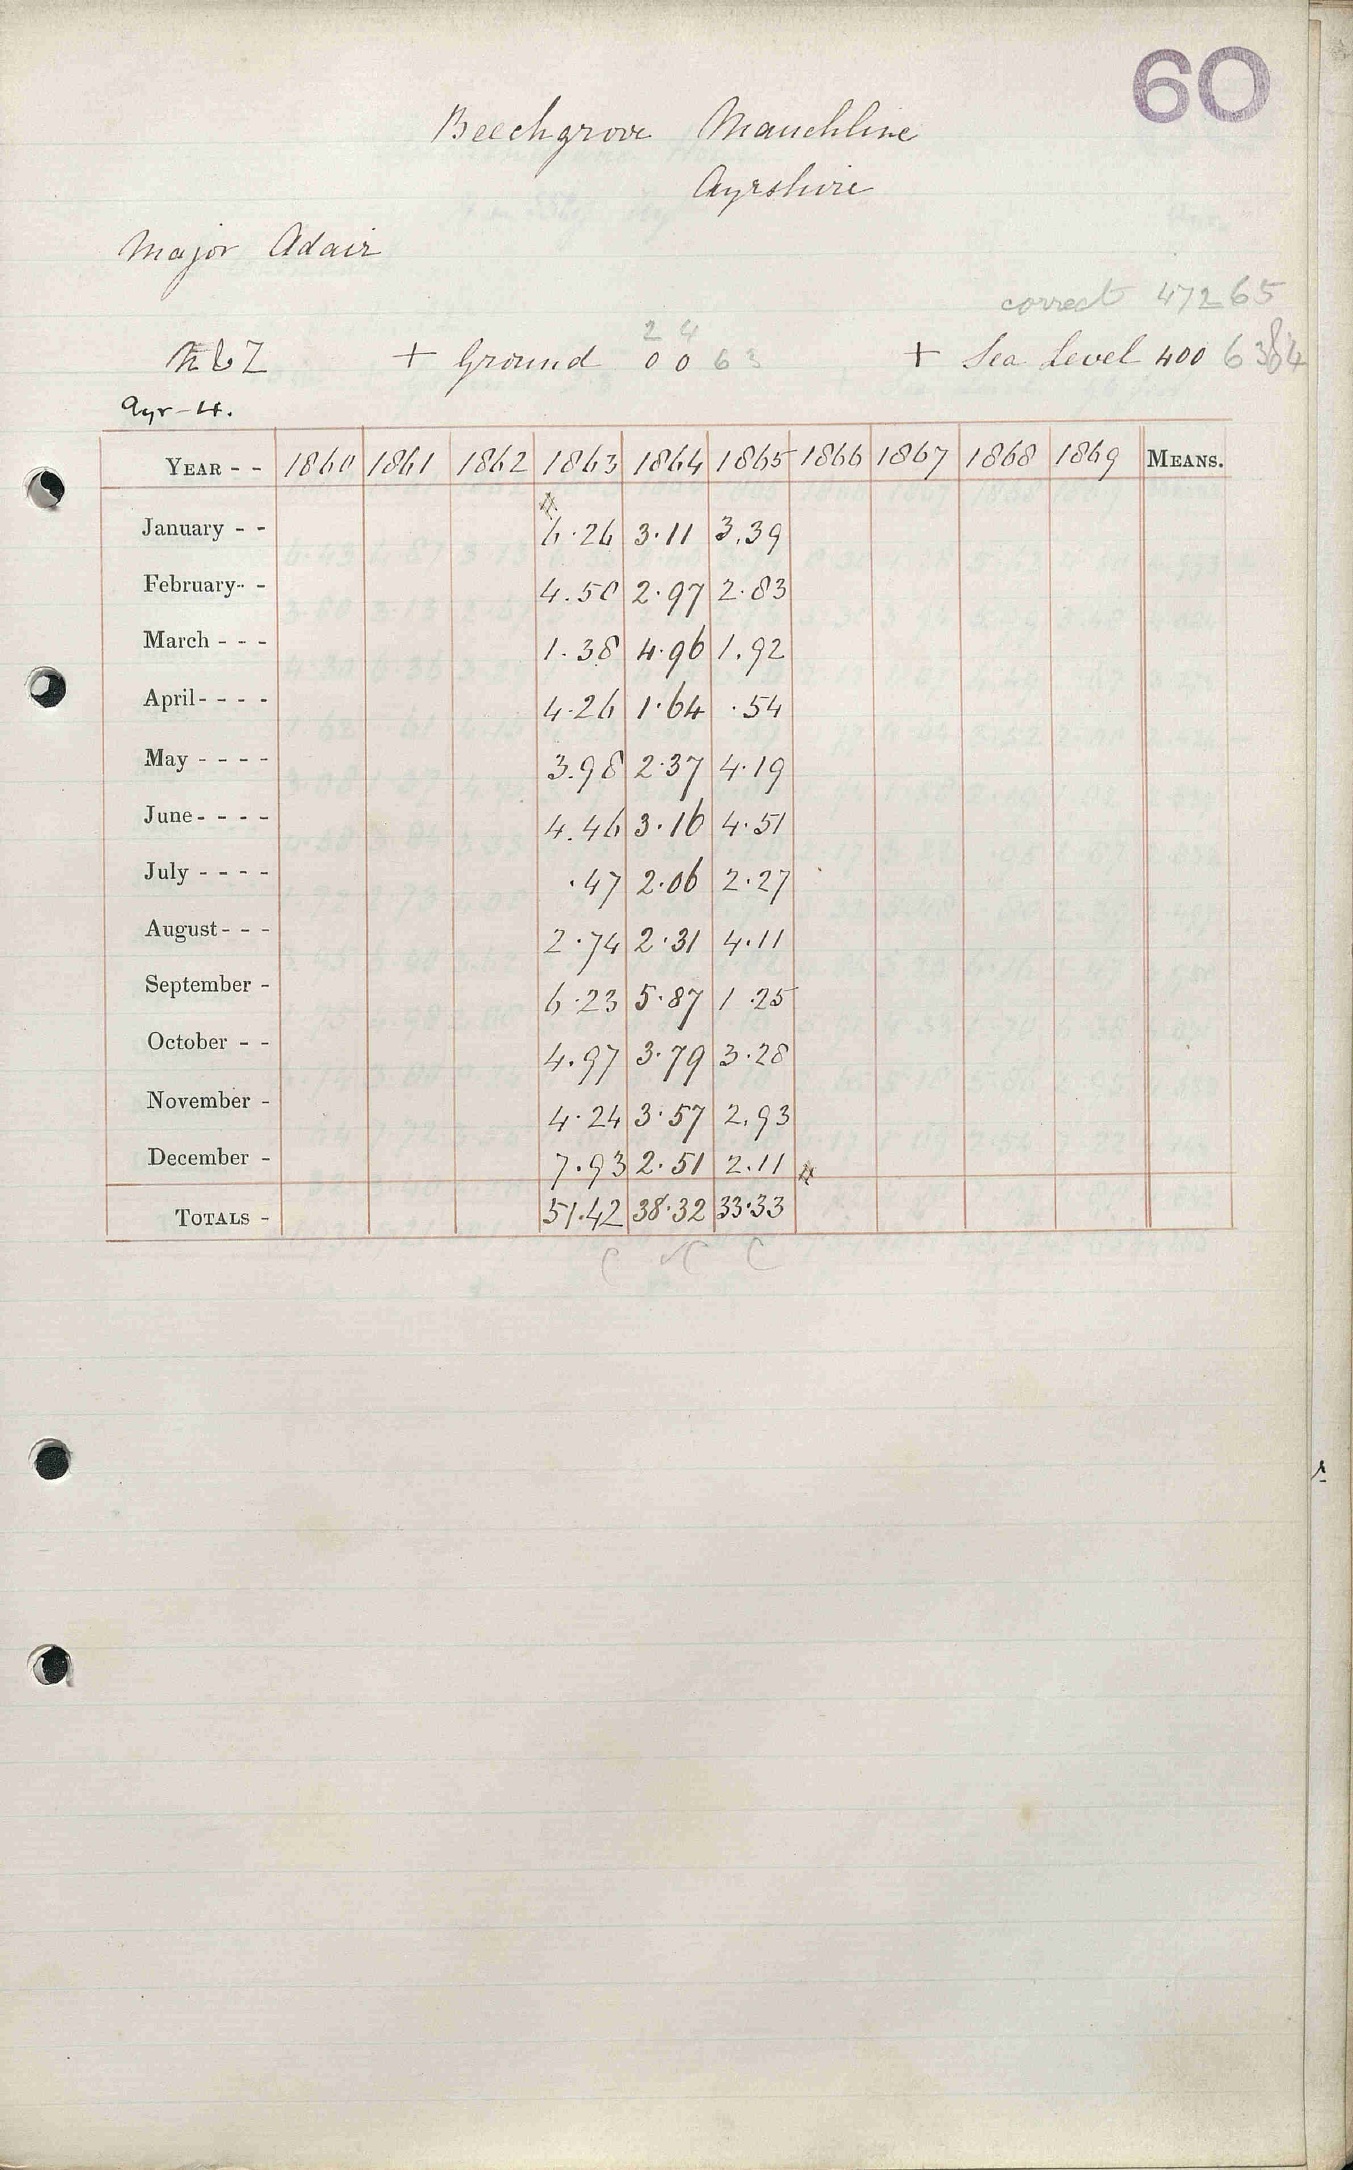 60
Beechgrove Mauchline
Ayrshire
Major Adair
correct 47265
2 4
+ Ground 0 0 63 + Sea Level 400
Ayr-4.
YEAR - - 1860 1861 1862 1863 1864 1865 1866 1867 1868 1869 MEANS.
January - - 6.26 3.11 3.39
February - - 4.50 2.97 2.83
March - - - 1.38 4.96 1.92
April - - - - 4.26 1.64 .54
May - - - - 3.98 2.37 4.19
June - - - - 4.46 3.16 4.51
July - - - - .47 2.06 2.27
August - - - 2.74 2.31 4.11
September - 6.23 5.87 1.25
October - - 4.97 3.79 3.28
November - 4.24 3.57 2.93
December - 7.93 2.51 2.11
TOTALS - 51.42 38.32 33.33
C C C